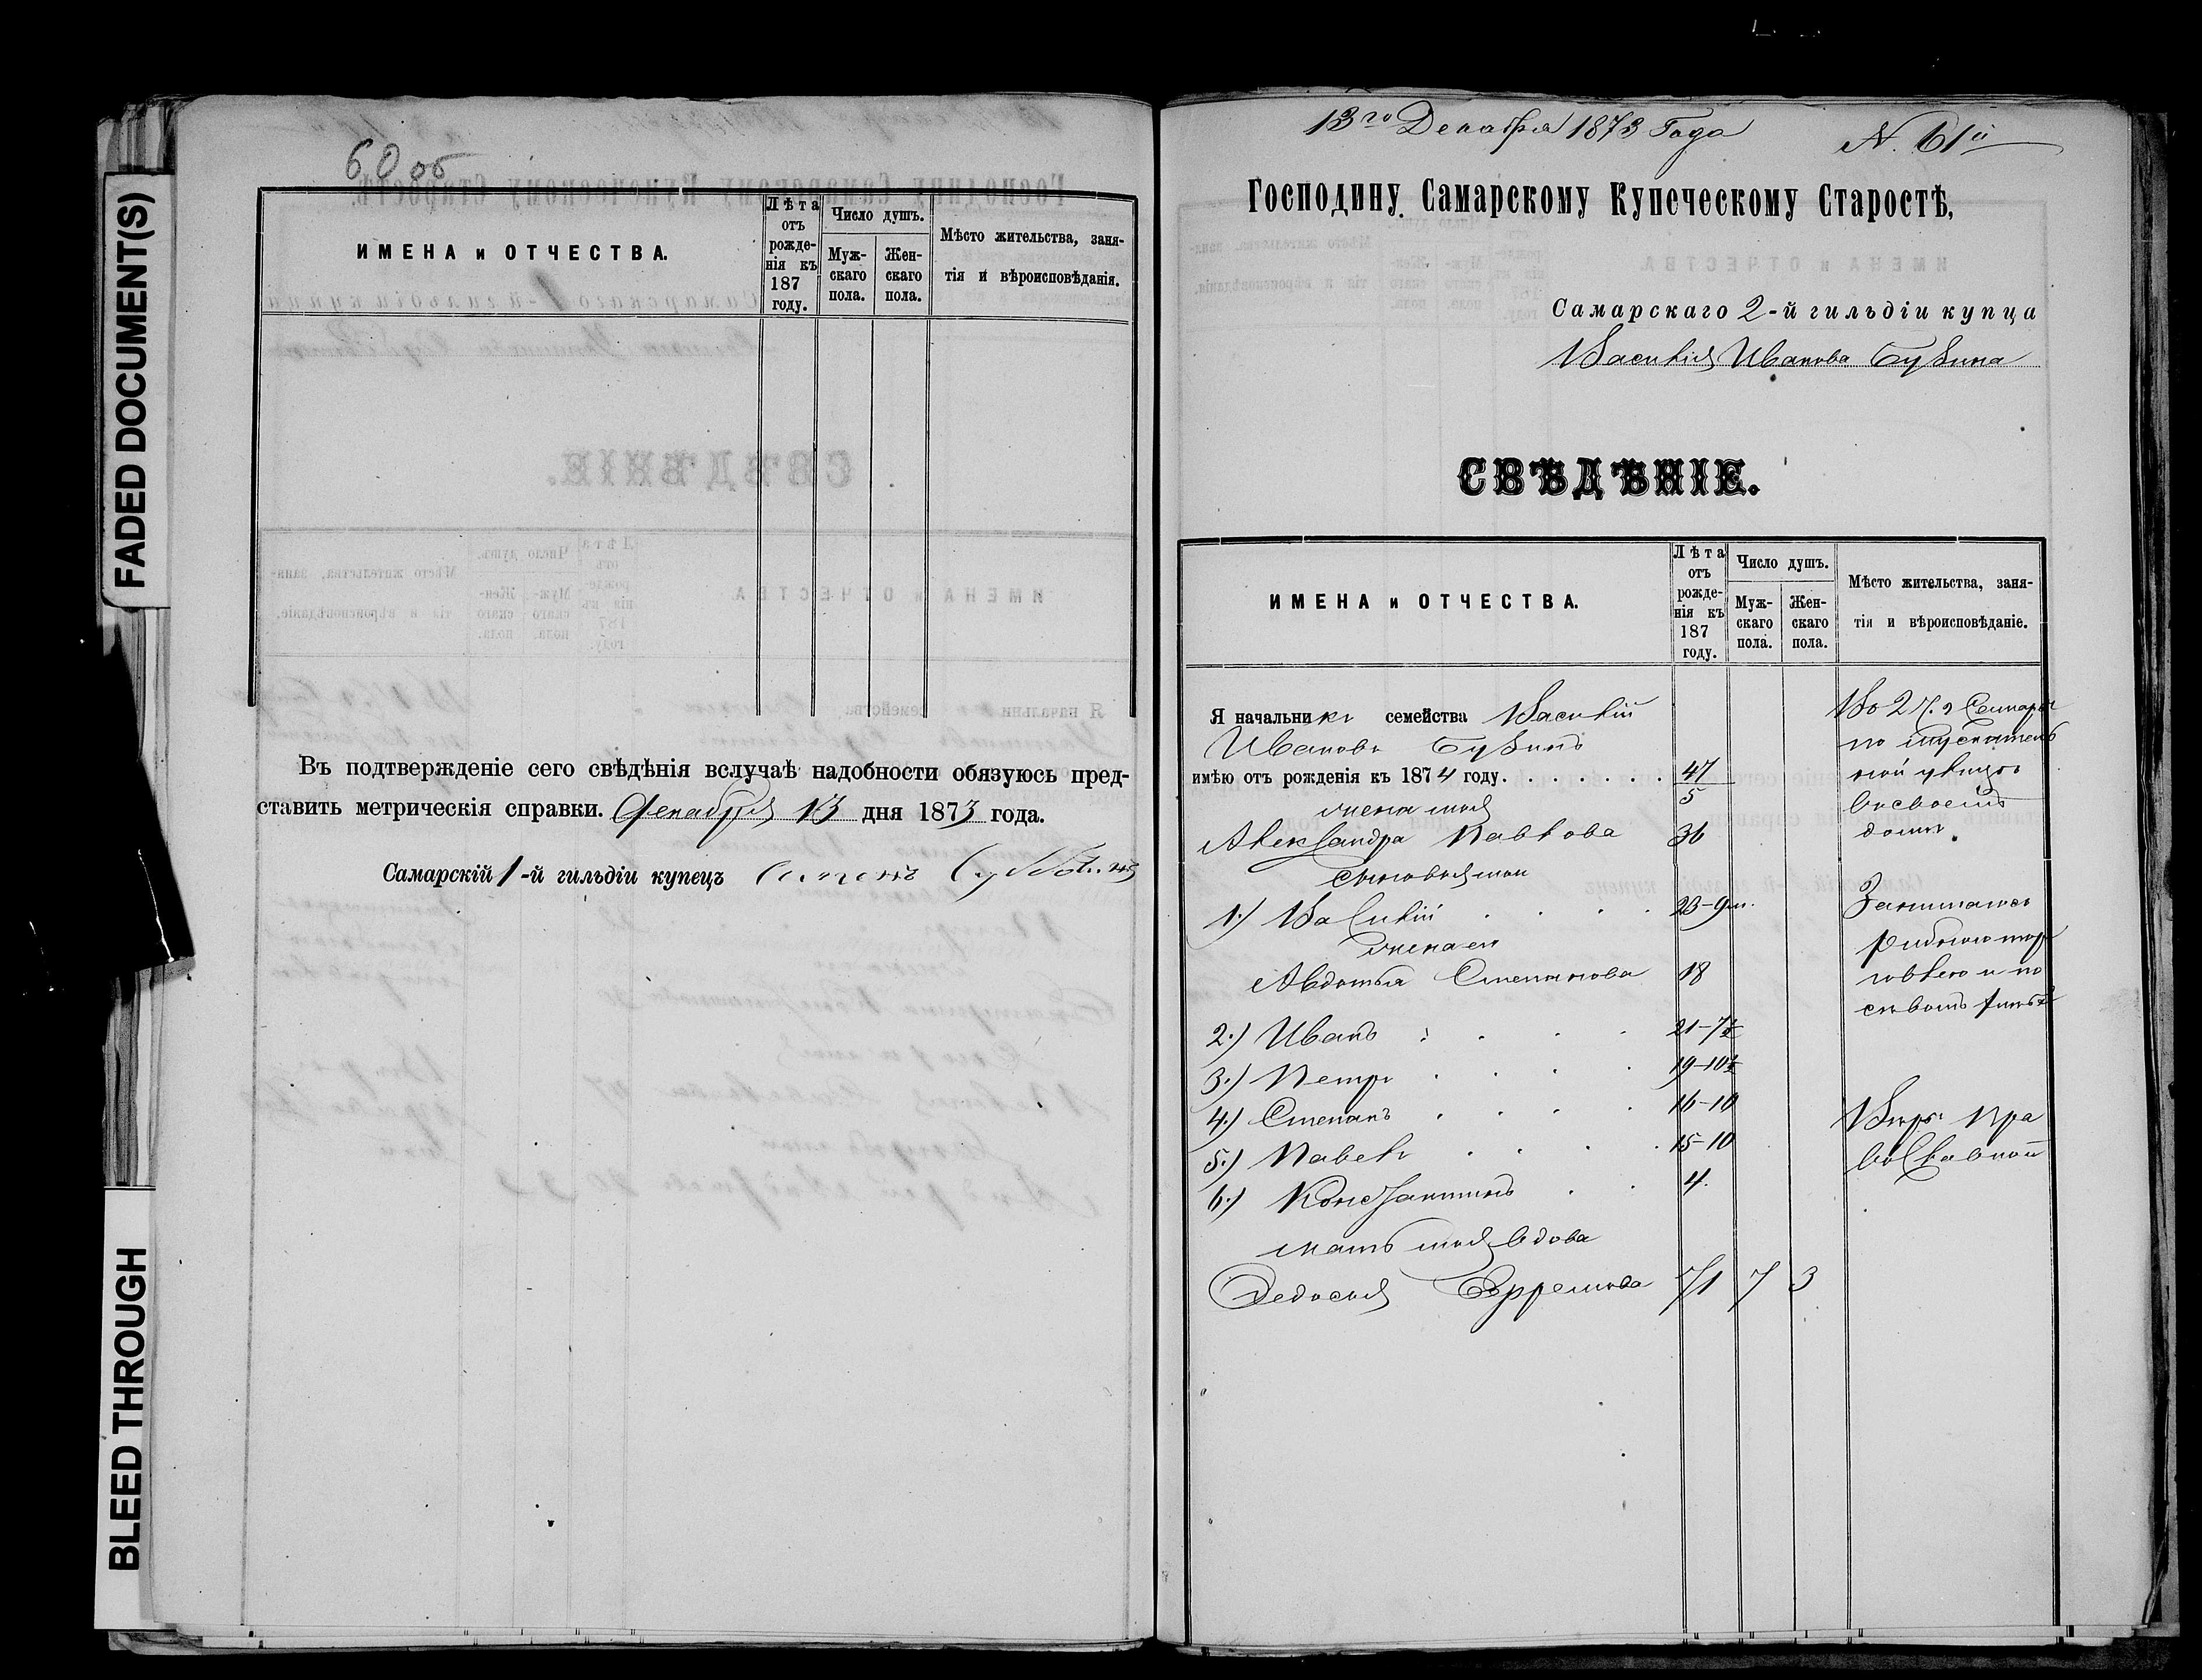 FADED DOCUMENT(S)
BLEED THROUGH
60 об
ИМЕНА и ОТЧЕСТВА.
Лѣта отъ рожде-нія къ 187 году.
Число душъ.
Муж-скаго пола.
Жен-скаго пола.
Мѣсто жительства, заня-
тія и вѣроисповѣданія.
Въ подтвержденіе сего свѣдѣнія вслучаѣ надобности обязуюсь пред-
ставить метрическія справки. Декабря 13 дня 1873 года.
Самарскій 1-й гильдіи купецъ
13го Декабря 1873 Года
N. 61й
Господину Самарскому Купеческому Старостѣ,
Самарскаго 2-й гильдіи купца
Василія Иванова
СВѢДѢНІЕ.
ИМЕНА и ОТЧЕСТВА.
Лѣта отъ рожде-нія къ 187 году.
Число душъ.
Муж-скаго пола.
Жен-скаго пола.
Мѣсто жительства, заня-
тія и вѣроисповѣданіе.
Я начальникъ семейства Василій
Ивановъ
имѣю отъ рожденія къ 1874 году. . . . . . . 47
5
жена моя
Александра Павлова 36
сыновья мои
1.) Василій 23-9м.
жена ег
Авдотья Степанова 18
2.) Иванъ 21-7½
3.) Петръ 19-10½
4.) Степанъ 16-10
5.) Павелъ 15-10
6.) Константинъ 4.
мать моя вдова
Федосья Ефремова 71 7 3
Во 2 Ч. г Самары
по
ной улицѣ
въ своемъ
домѣ.
Занимаюсь
тор
говлею и по
Вѣры Пра
вославной